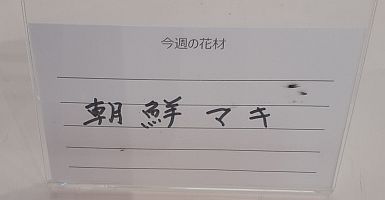 今週の花材
朝鮮マキ